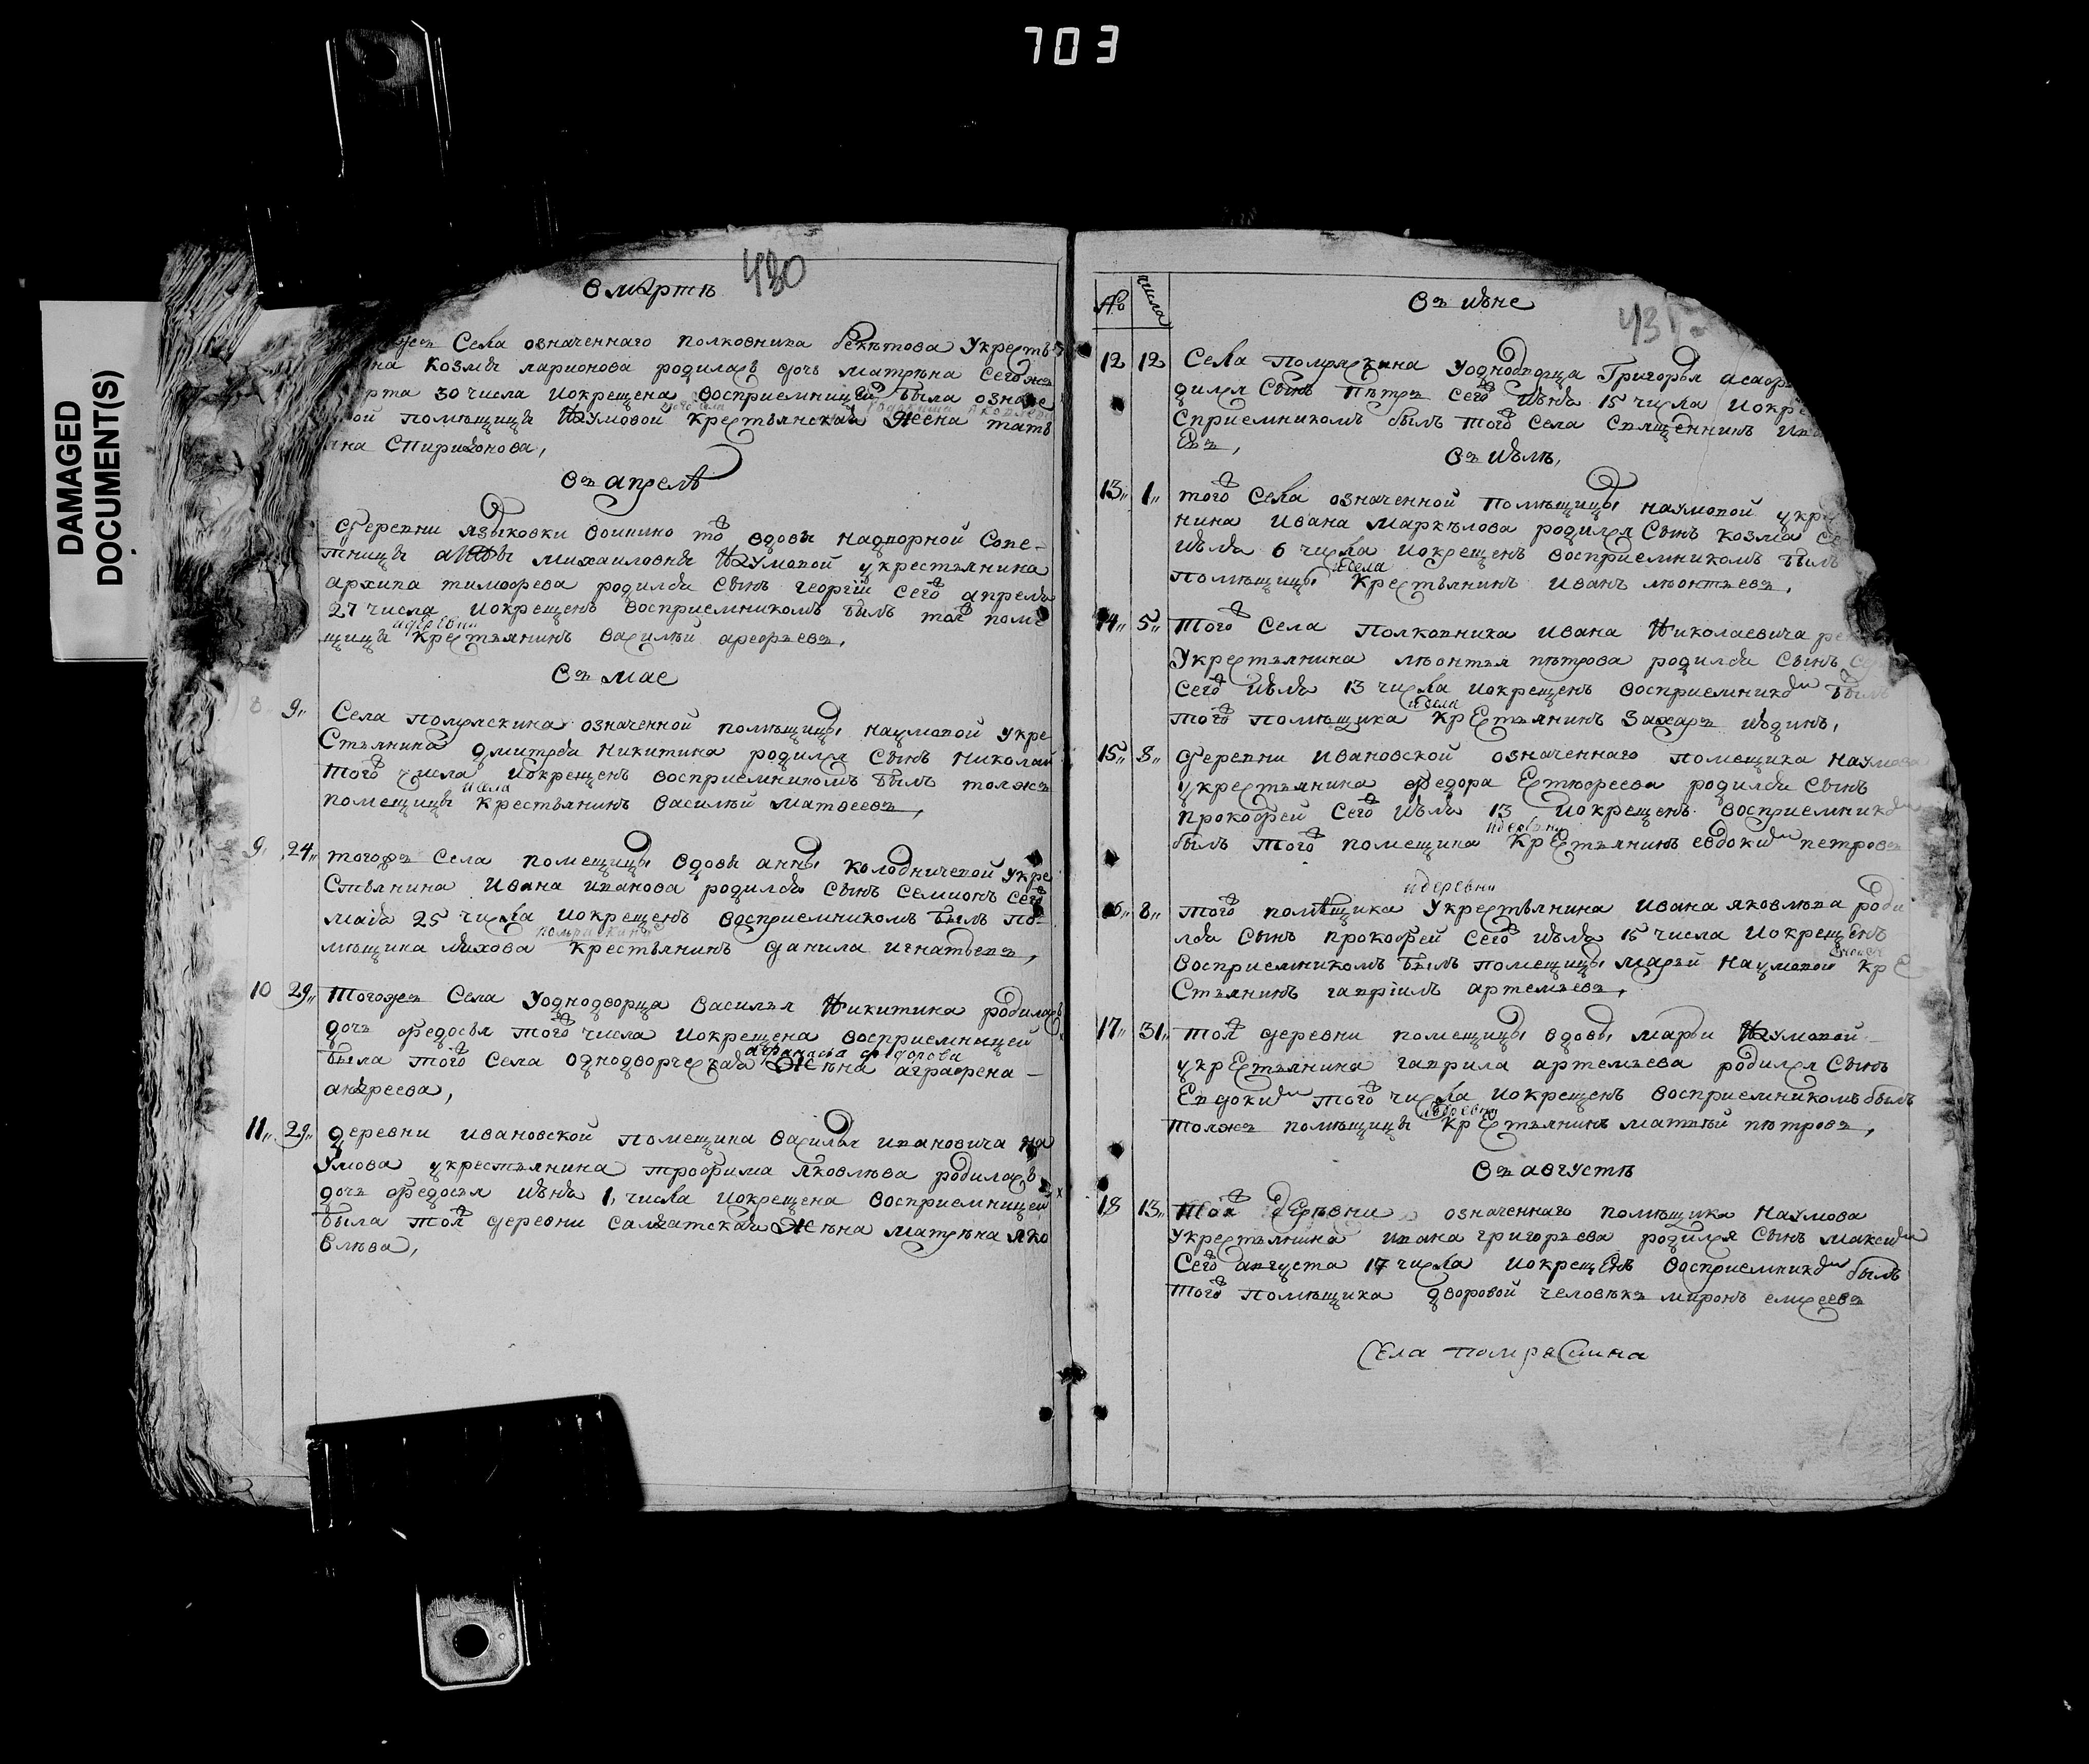 703
DAMAGED
DOCUMENT(S)
430
в марте
села означеннаго полковника бекѣтова укресть
на козмы ларионова родилась дочь матрѣна сего
рта 30 числа и окрещена восприемницей была означе
ной помѣщицы Наумовой крестьянская жена тать
на Спиридонова,
въ апрелѣ
деревни языковки тоже вдовы надворной сове-
тницы михаиловны Наумовой укрестьянина
архипа тимофеева родился сынъ георгiй сего апреля
27 числа и окрещенъ восприемникомъ былъ той поме
щицы крестьянинъ василѣй арефьевъ,
въ мае
8 9,, Села помряскина означенной помѣщицы наумовой укре
стьянина дмитрея никитина родился сынъ николай
того числа и окрещенъ восприемникомъ былъ тоежъ
помещицы и села крестьянинъ василѣй матвеевъ,
9 24,, тогожъ села помещицы вдовы анны колодничевой укре
стьянина ивана иванова родился сынъ семионъ сего
маия 25 числа и окрещенъ восприемникомъ былъ по-
мѣщика крестьянинъ данила игнатьевъ,
10 29,, тогожъ села уоднодворца василья Никитина родилась
дочь федосья того числа и окрещена восприемницей
афанасья федорова
была того села однодворческая жѣна аграфена
андреева,
11,, 29,, деревни ивановской помещика василья ивановича на
умова укрестьянина трофима яковлѣва родилась
дочь федосья июня 1, числа и окрещена восприемницей
была той деревни салдатская жѣна матрѣна яко
влѣва,
№ числа
въ июне
431
12 12 села помряскина уоднодворца Григорья
дился сынъ пѣтръ сего июня 15 числа и окре
сприемникомъ былъ того села священникъ
евъ,
въ июлѣ,
13,, 1,, того села означенной помѣщицы наумовой укре
нина ивана маркѣлова родился сынъ козма се
июля 6 числа и окрещенъ восприемникомъ былъ
и села
помѣщицы крестьянинъ иванъ лѣонтьевъ,
14,, 5,, того села полковника ивана Николаевича
укрестьянина лѣонтья пѣтрова родился сынъ
сего июля 13 числа и окрещенъ восприемникомъ былъ
и села
того помѣщика крестьянинъ захаръ июдинъ,
15,, 8,, деревни ивановской означеннаго помещика наумова
укрестьянина федора Евтюфеева родился сынъ
прокофей сего июля 13 и окрещенъ восприемникомъ
и деревни
былъ того помещика крестьянинъ евдокимъ петровъ
и деревни
16,, 8,, того помѣщика укрестьянина ивана яковлѣва роди
лся сынъ прокофей сего июля 15 числа и окрещенъ
восприемникомъ былъ помещицы марьи наумовой кре
стьянинъ гаврiилъ артемьевъ,
17,, 31,, той деревни помещицы вдовы марьи Наумовой
укрестьянина гаврила артемьева родился сынъ
Евдокимъ того числа и окрещенъ восприемникомъ былъ
и деревни
тоежъ помѣщицы крестьянинъ матвѣй пѣтровъ,
въ августѣ
18 13,, той деревни означеннаго помѣщика наумова
укрестьянина ивана григорьева родился сынъ максимъ
сего августа 17 числа и окрещенъ восприемникомъ былъ
того помѣщика дворовой человѣкъ миронъ елисеевъ
Села помряскина